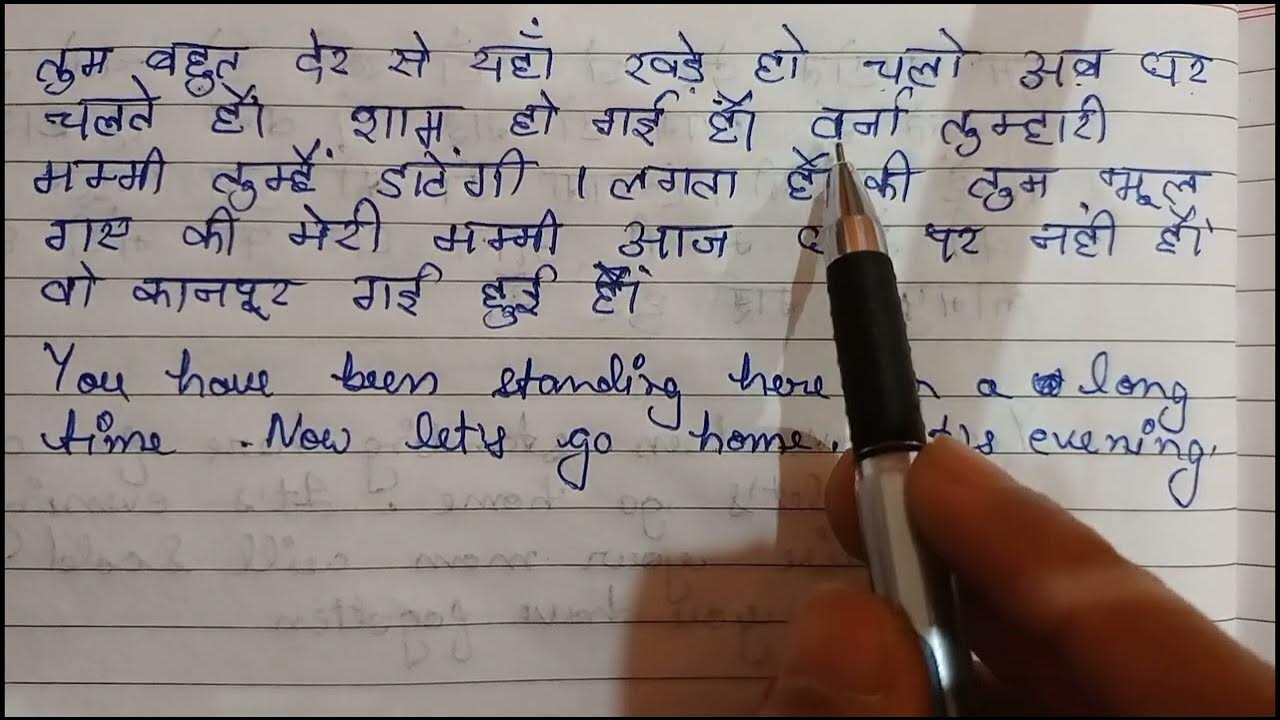 तुम बहुत देर से यहाँ खड़े हो चलो अब घर
चलते हैं। शाम हो गई है। वर्ना तुम्हारी
मम्मी तुम्हें डाटेंगी । लगता है की तुम भूल
गए की मेरी मम्मी आज पर नहीं हैं।
वो कानपूर गई हुई हैं।
You have been standing here a long
time . Now let's go home. evening.